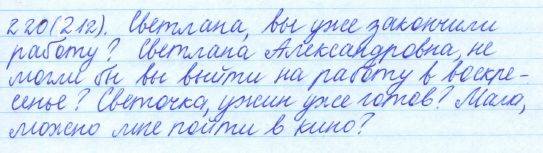 220(212). Светлана, вы уже закончили
работу? Светлана Александровна, не
могли бы вы выйти на работу в воскре-
сенье? Светочка, ужин уже готов? Мама,
можно мне пойти в кино?